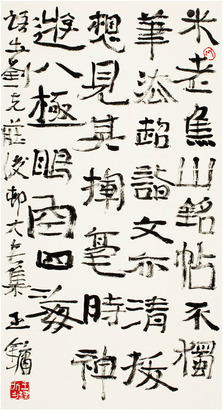 米老焦山銘帖不獨
筆法超詣文亦清拔
想見其揮毫時神
遊八極眼空四海
語出劉克莊後邨大全集王鏞